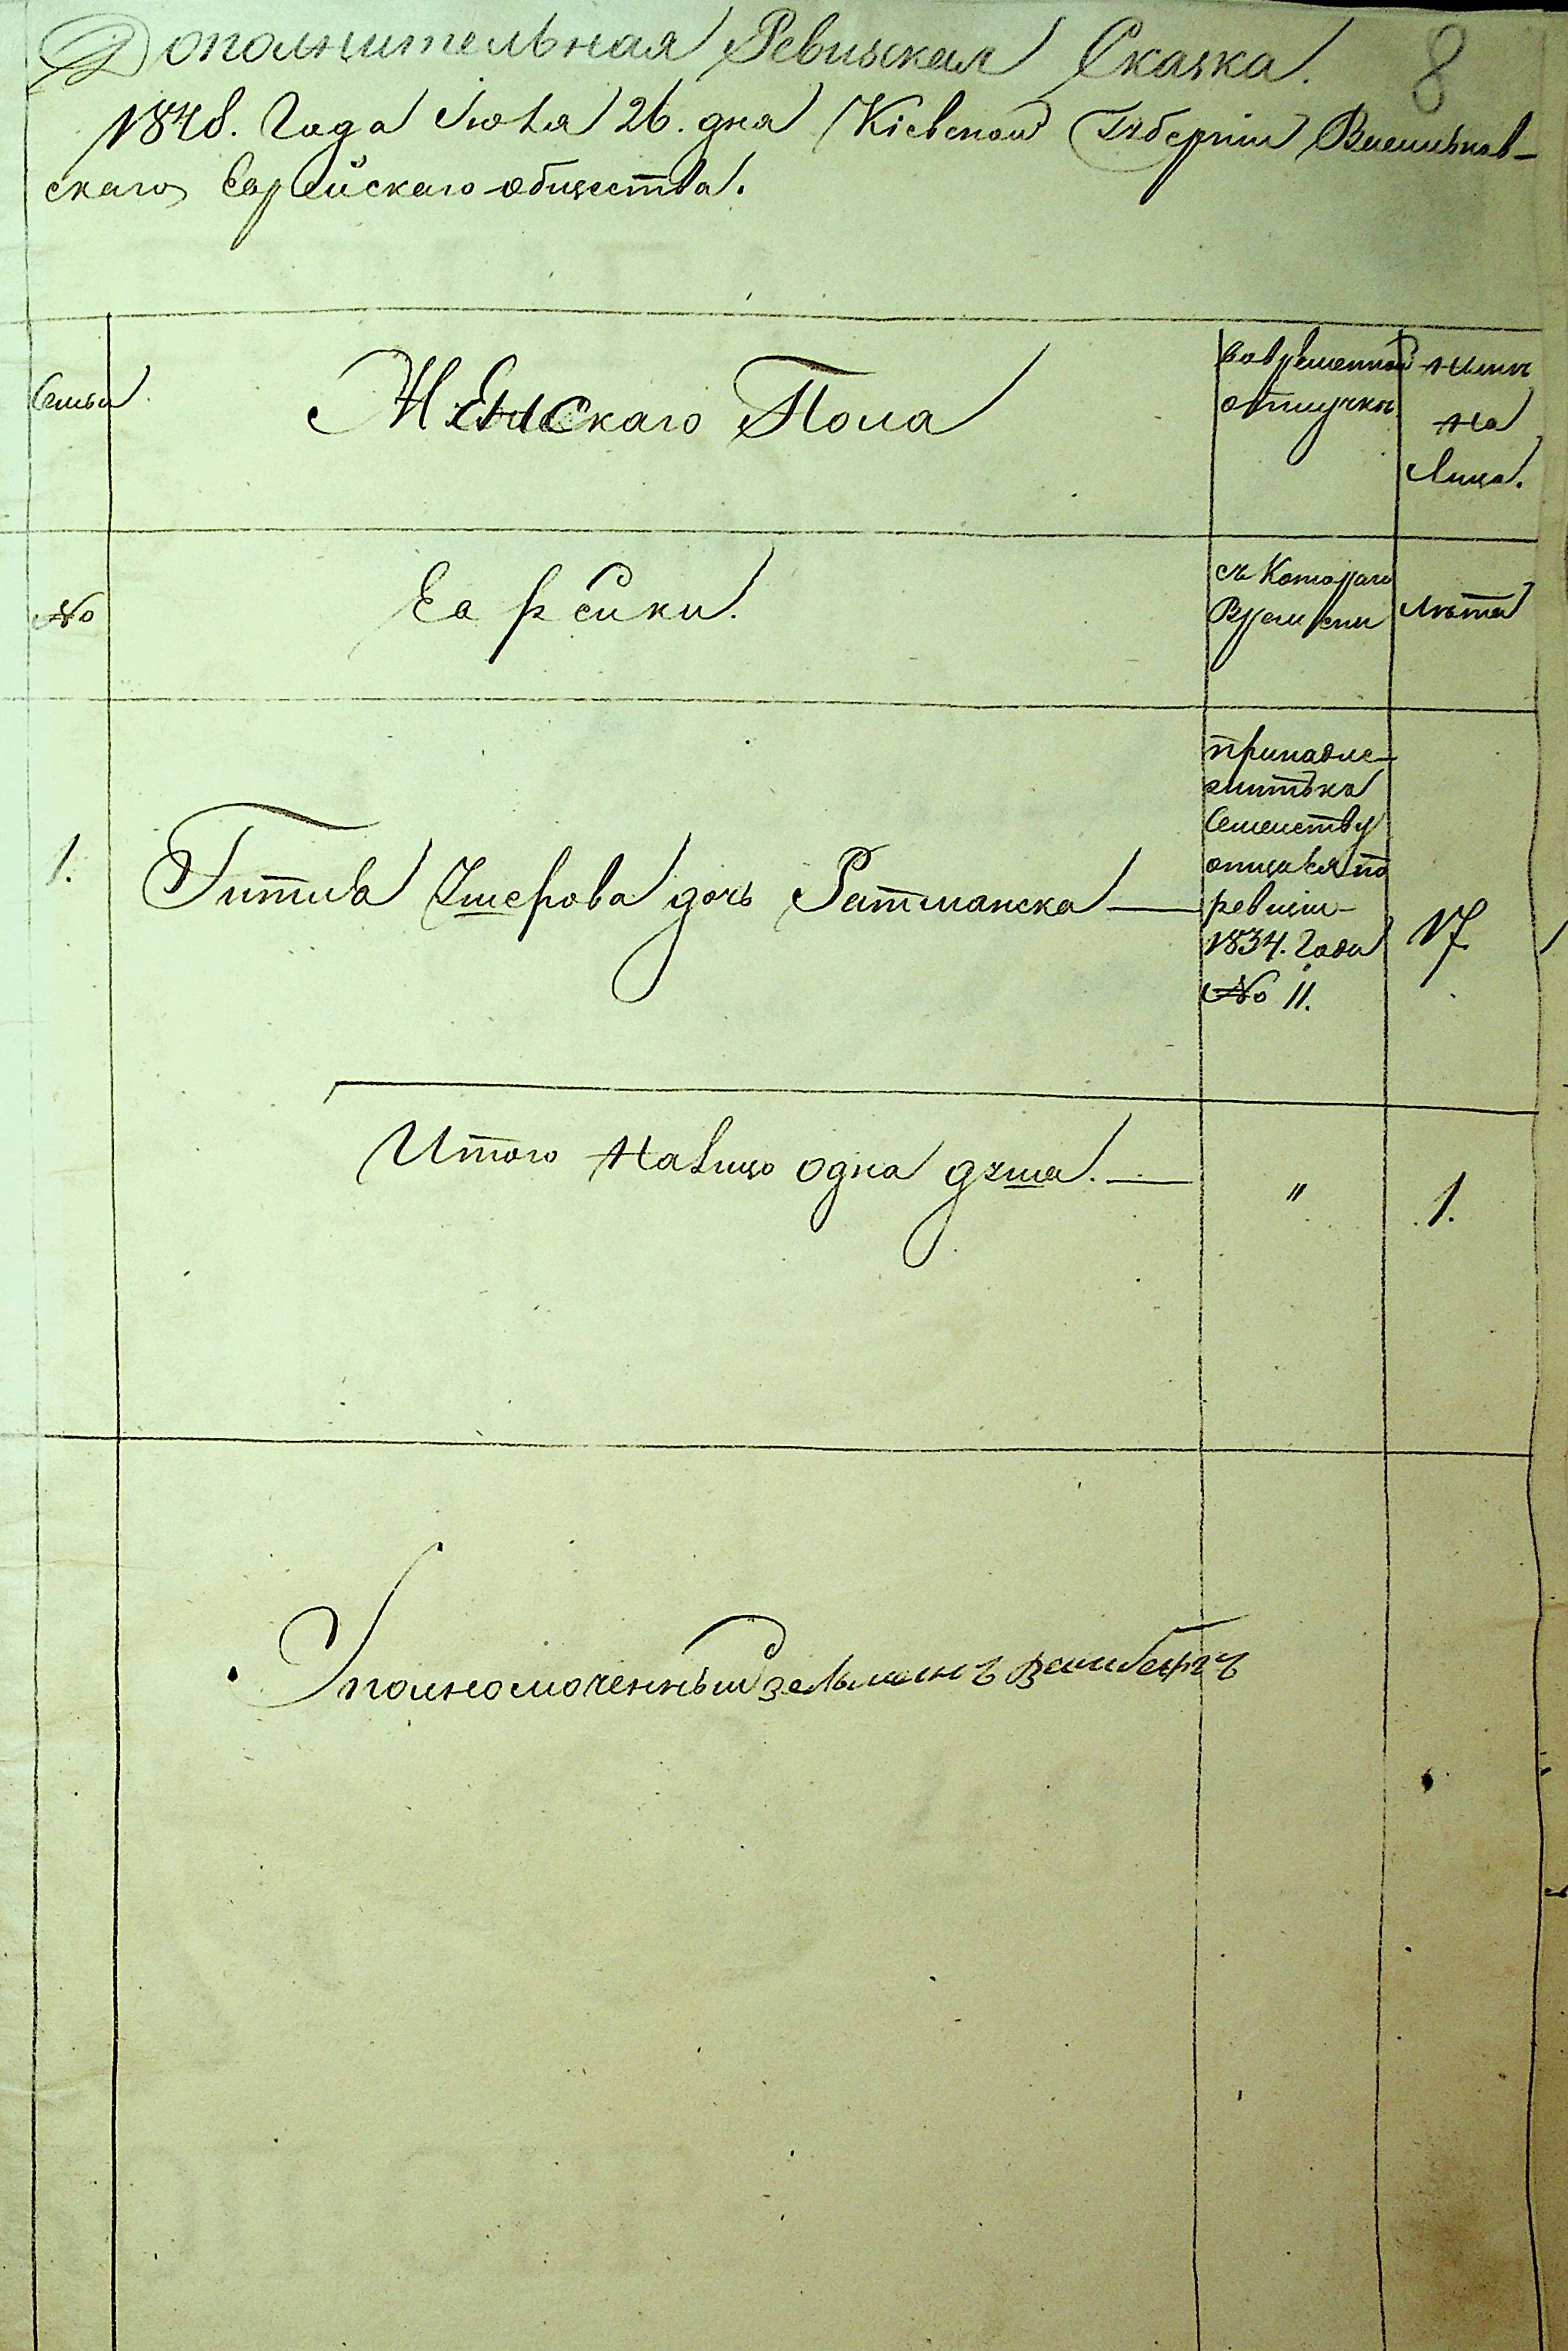 Дополнительная Ревизская Сказка. 8
1848. Года Июля 26. дня Кіевской Губерніи Васильков-
скаго Еврейскаго общества.
Семьи
Женскаго Пола
Во временной
отлучкѣ
Нынѣ
на
Лицо.
№
Еврейки.
съ Котораго
Времени
Лѣта
1. Гитля Ушерова дочь Ратманска —
принадле-
житъ къ
Семейству
по
ревизіи
1834. Года
№ 11.
17
Итого на Лицо одна душа. — " 1.
Уполномоченный Зельманъ